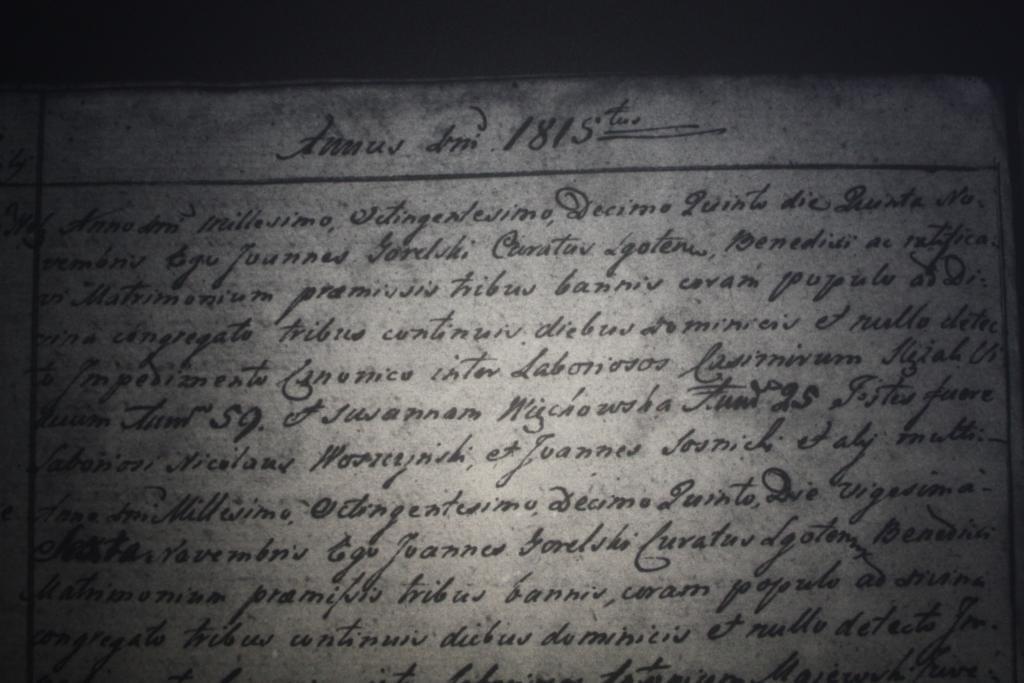 Annus dni 1815tus
Anno dni Millesimo, Octingentesimo, Decimo Quinto die Quinta No-
vembris Ego Joannes Gorelski Curatus Lgoten, Benedixi ac ratifica-
vi Matrimonium præmissis tribus bannis coram populo ad Di-
vina congregato tribus continuis diebus dominicis et nullo detec
to Impedimento Canonico inter Laboriosos Casimirum Vi
duum Annor 59. et Susannam Więchowska Annor 25 Testes fuere
Laboriosi Nicolaus Woszczynski, et Joannes Sosnicki et alij multi
Anno dni Millesimo, Octingentesimo, Decimo Quinto, Die Vigesima-
Sexta Novembris Ego Joannes Gorelski Curatus Lgoten Benedixi
Matrimonium præmissis tribus bannis, coram populo ad divina
congregato tribus continuis diebus dominicis et nullo detecto Im-